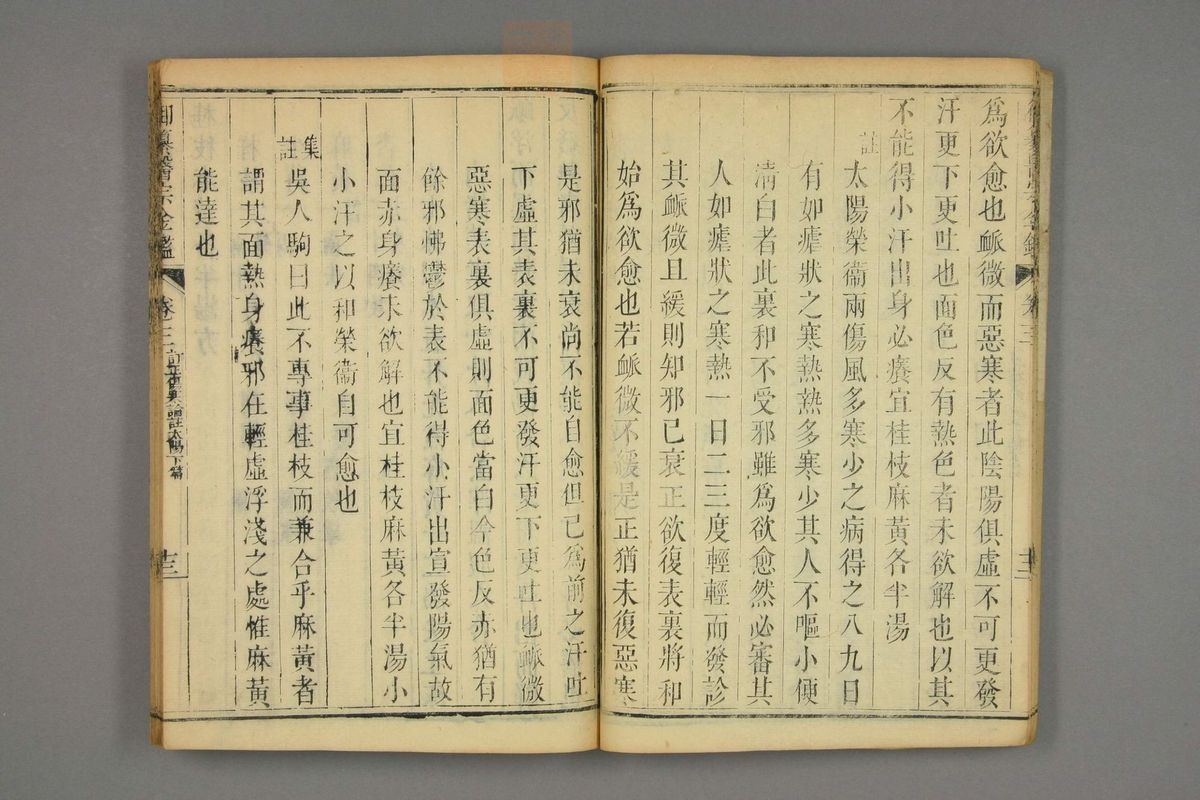 爲欲愈也脈微而惡寒者此陰陽俱虛不可更發
汗更下更吐也面色反有熱色者未欲解也以其
不能得小汗出身必癢宜桂枝麻黃各半湯
註
太陽榮衞兩傷風多寒少之病得之八九日
有如瘧狀之寒熱熱多寒少其人不嘔小便
淸白者此裏和不受邪雖爲欲愈然必審其
人如瘧狀之寒熱一日二三度輕輕而發診
其脈微且緩則知邪已衰正欲復表裏將和
始爲欲愈也若脈微不緩是正猶未復惡寒
是邪猶未衰尚不能自愈但已爲前之汗吐
下虛其表裏不可更發汗更下更吐也脈微
惡寒表裏俱虛則面色當白今色反赤猶有
餘邪怫鬱於表不能得小汗出宣發陽氣故
面赤身癢未欲解也宜桂枝麻黃各半湯小
小汗之以和榮衞自可愈也
集註
吳人駒曰此不專事桂枝而兼合乎麻黃者
謂其面熱身癢邪在輕虛浮淺之處惟麻黃
能達也
御纂醫宗金鑑
卷三
訂正傷寒論註太陽下篇
十三